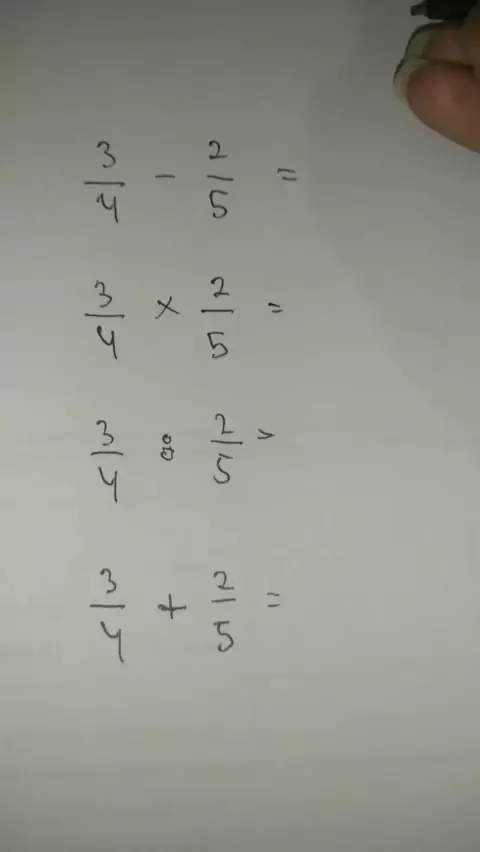 3/4 - 2/5 =
3/4 × 2/5 =
3/4 : 2/5 =
3/4 + 2/5 =